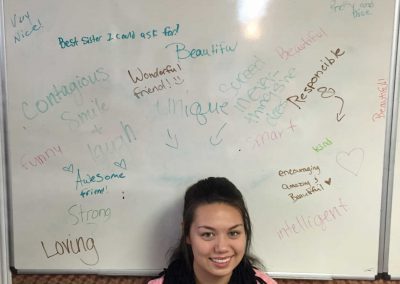 Very
Nice!
Best Sister I could ask for!
Beautiful
Beautiful
Contagious
Smile
+
laugh
Wonderful
friend!!
Unique
Responsible
Beautiful!
Smart
Funny
Kind
Awesome
friend!
encouraging
amazing &
Beautiful!
Strong
intelligent
Loving